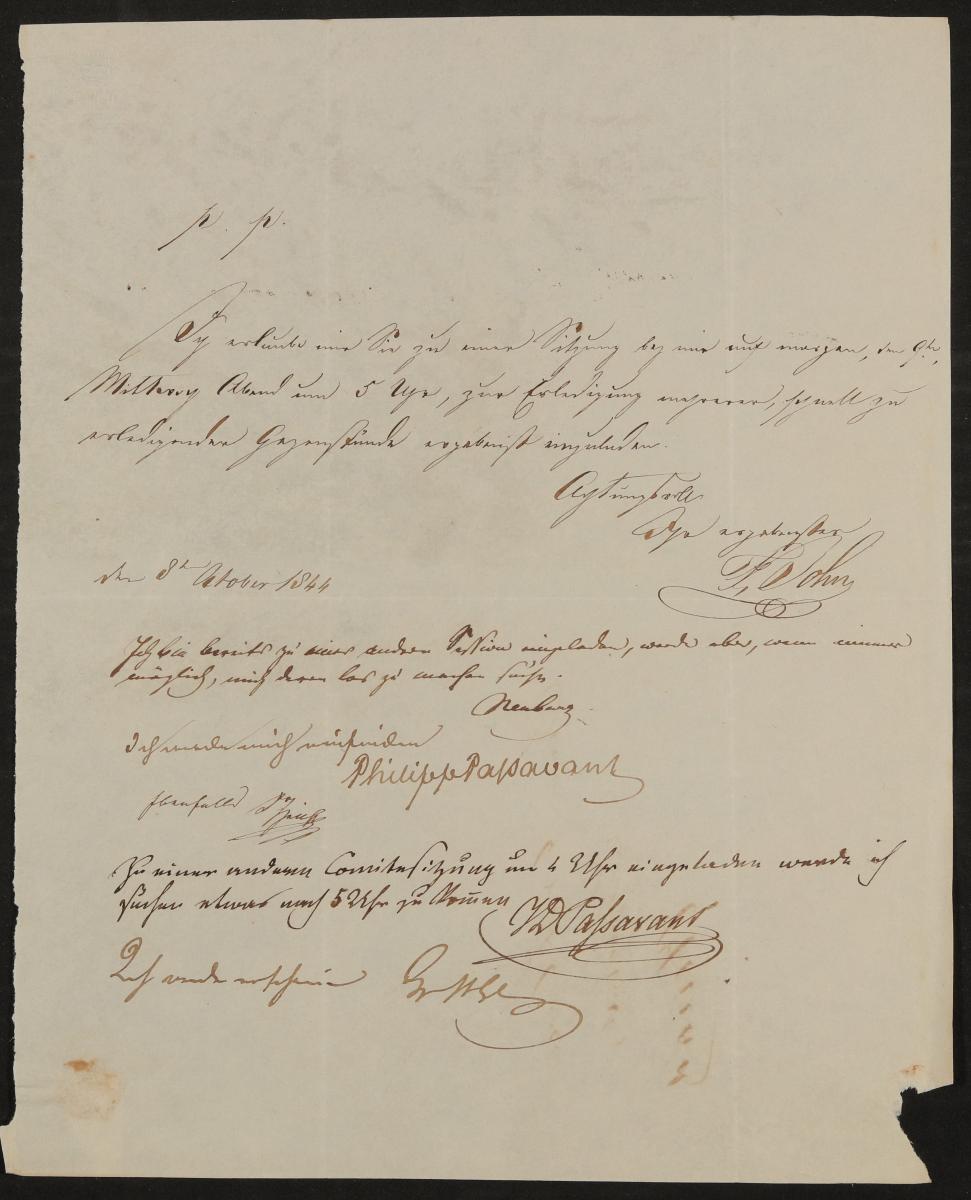 p. p.
Ich erlaube mir Sie zu einer Sitzung bey mir auf morgen, den 9ten,
Mittwoch Abend um 5 Uhr, zur Erledigung mehrerer, schnell zu
erledigender Gegenstände ergebenst einzuladen.
Achtungsvoll
Ihr ergebenster
den 8t Octobr 1844
Ich bin bereits zu einer andern Session eingeladen, werde aber, wenn immer
möglich, mich deren los zu machen suchen.
Neuburg
Ich werde mich einfinden
Philipp Passavant
Ebenfalls
Zu einer anderen Comitesitzung um 4 Uhr eingeladen werde ich
suchen etwas nach 5 Uhr zu kommen
JD Passavant
Ich werde erscheinen